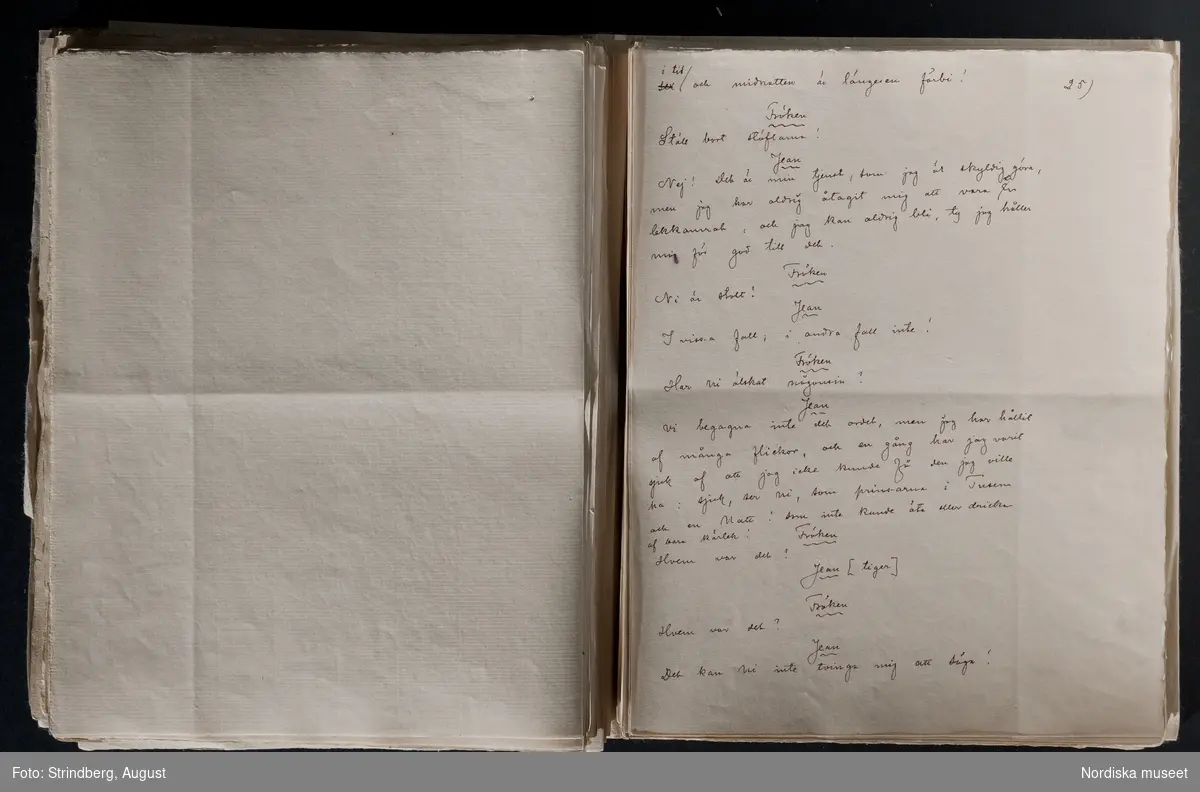 i tid
sex / och midnatten är längesen förbi!
25)
Fröken
Ställ bort stöflarne!
Jean
Nej! Det är min tjenst, som jag är skyldig göra,
men jag har aldrig åtagit mig att vara Er
lekkamrat, och jag kan aldrig bli, ty jag håller
mig för god till det.
Fröken
Ni är stolt!
Jean
I vissa fall; i andra fall inte!
Fröken
Har ni älskat någonsin?
Jean
Vi begagna inte det ordet, men jag har hållit
af många flickor, och en gång har jag varit
sjuk af att jag icke kunde få den jag ville
ha: sjuk, ser ni, som prinsarne i Tusen
och en Natt! som inte kunde äta eller dricka
af bara kärlek!
Fröken
Hvem var det?
Jean [tiger]
Fröken
Hvem var det?
Jean
Det kan Ni inte tvinga mig att säga!
Foto: Strindberg, August
Nordiska museet